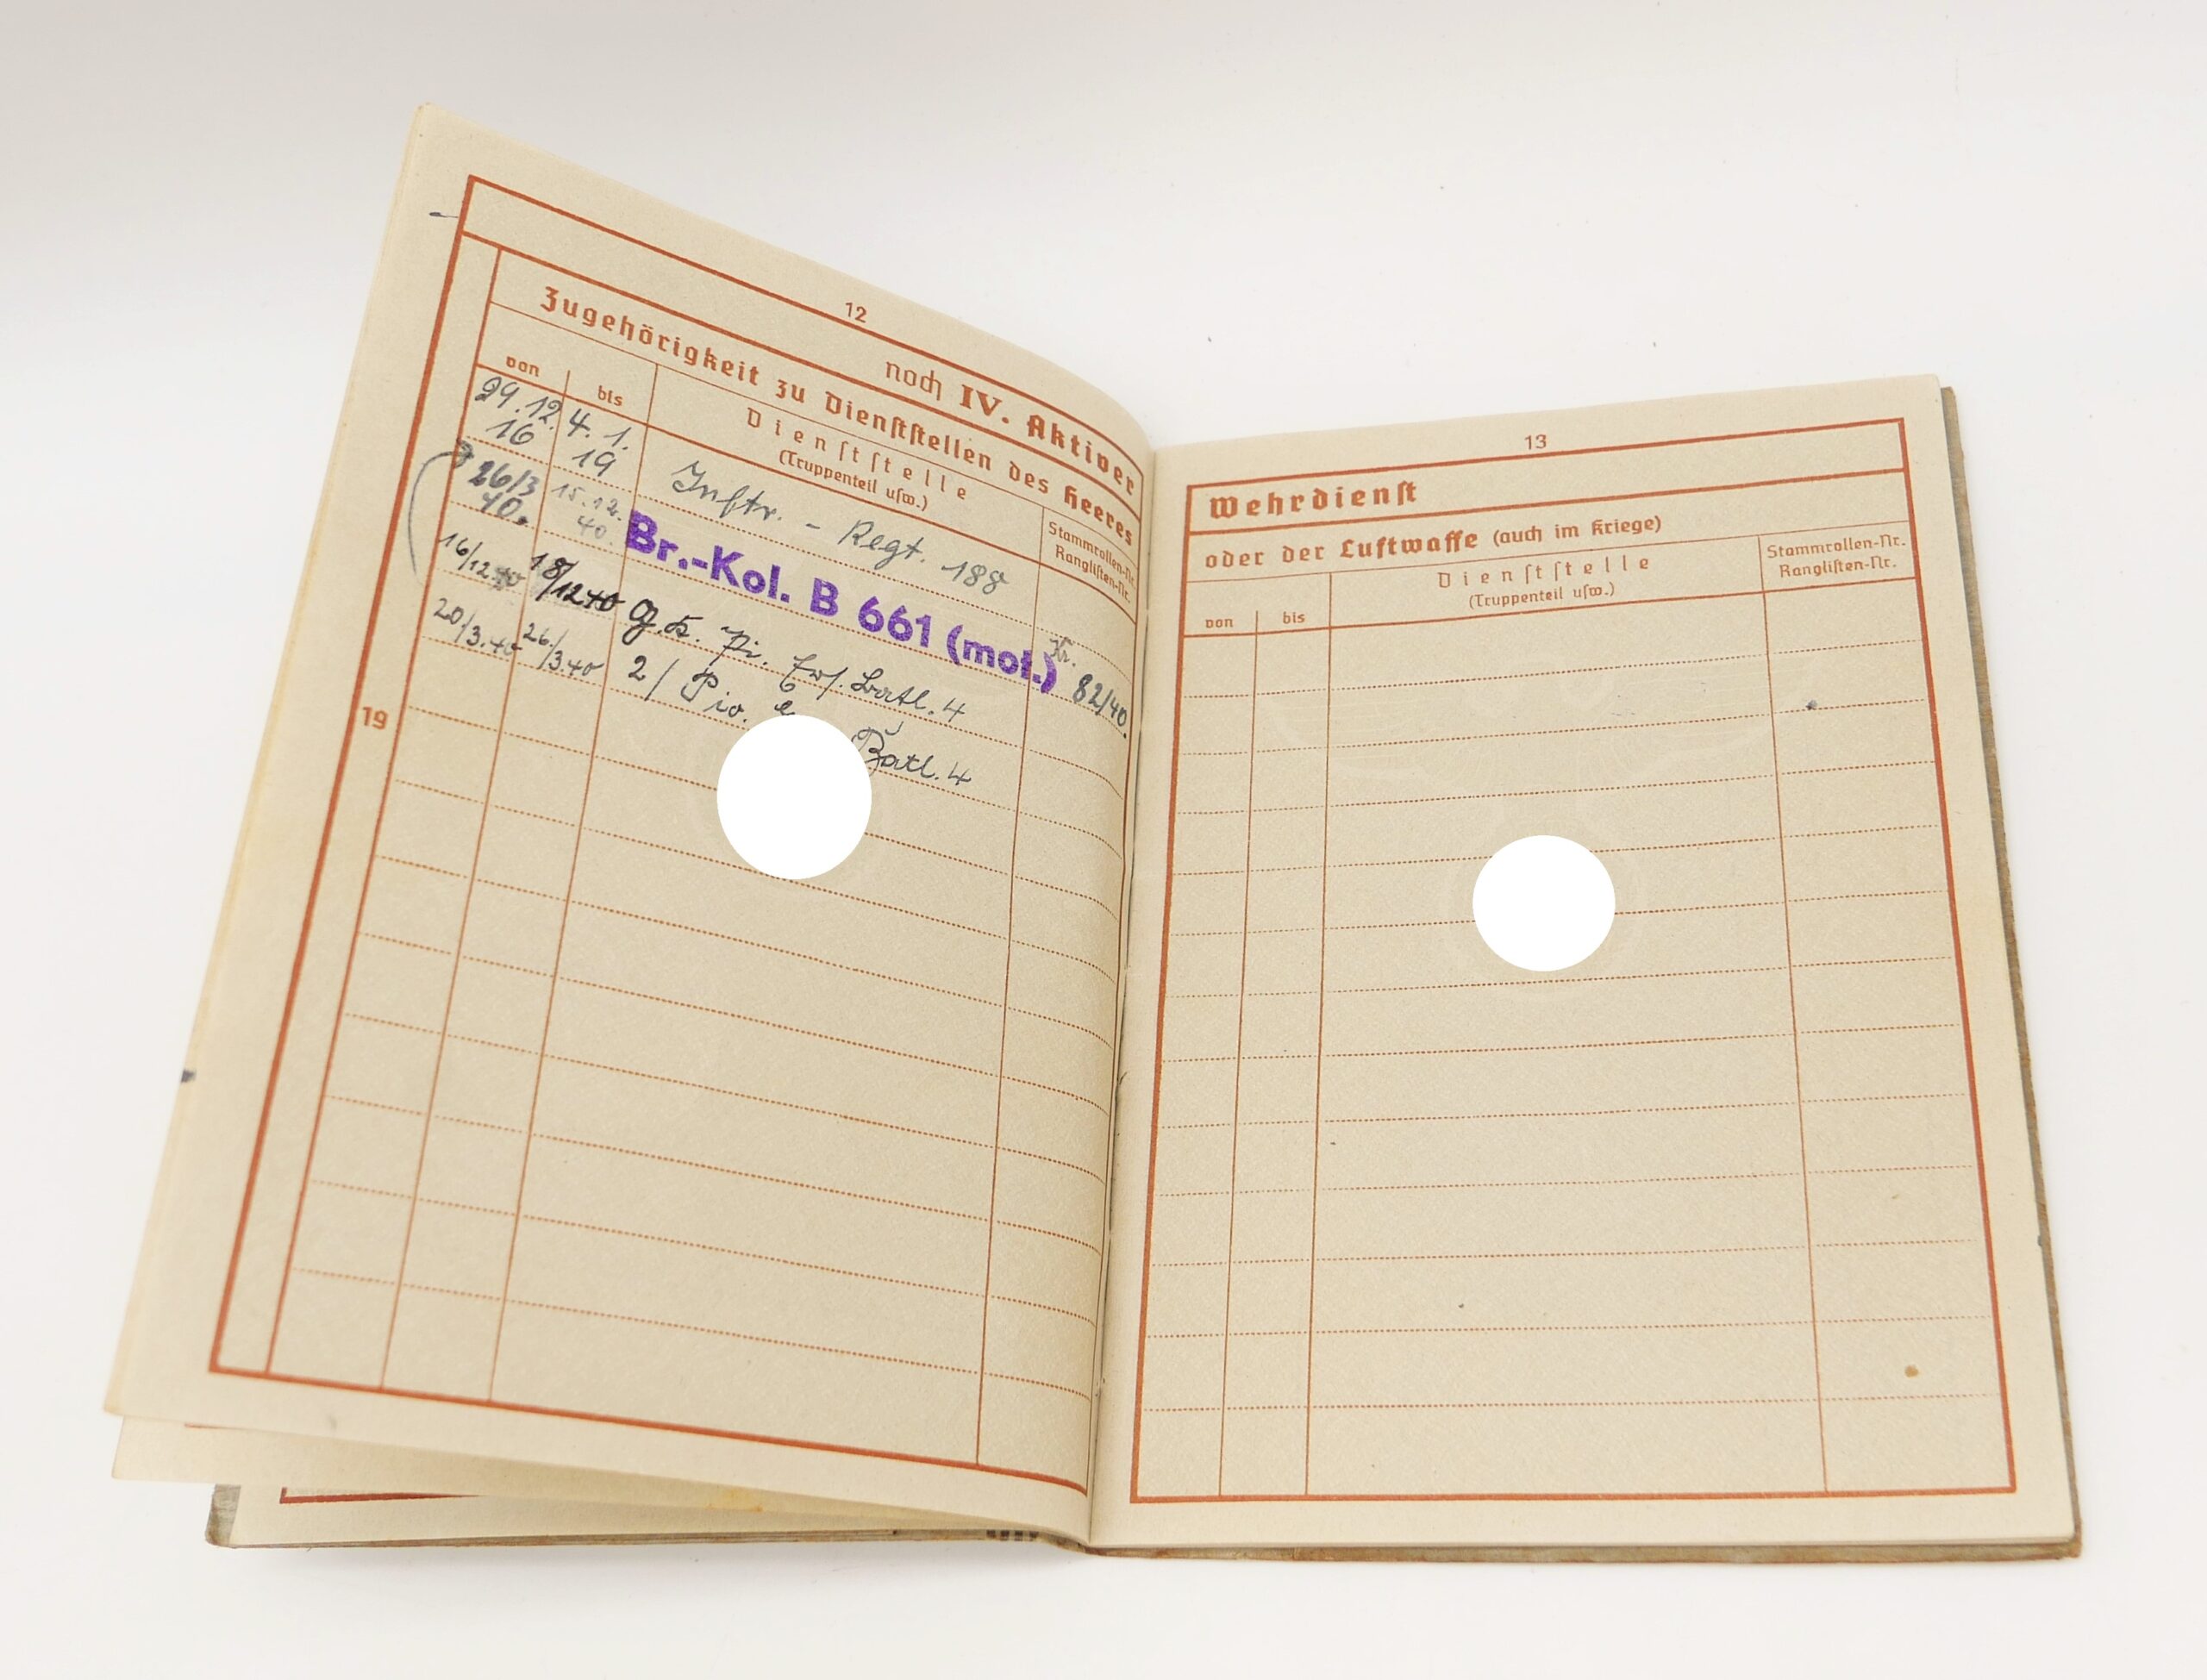 12
noch IV. Aktiver
Zugehörigkeit zu Dienststellen des Heeres
von
bis
Dienststelle
(Truppenteil usw.)
Stammrollen-Nr.
Ranglisten-Nr.
29.12. 16
4. 1. 19
Inftr. - Regt. 188
26/3 40.
15.12. 40.
Br.-Kol. B 661 (mot.)
82/40.
16/12.40
18/12 40
Pi. Ers. Batl. 4
20/3.40
26/3.40
2/ Pio.
Batl. 4
19
13
Wehrdienst
oder der Luftwaffe (auch im Kriege)
von
bis
Dienststelle
(Truppenteil usw.)
Stammrollen-Nr.
Ranglisten-Nr.